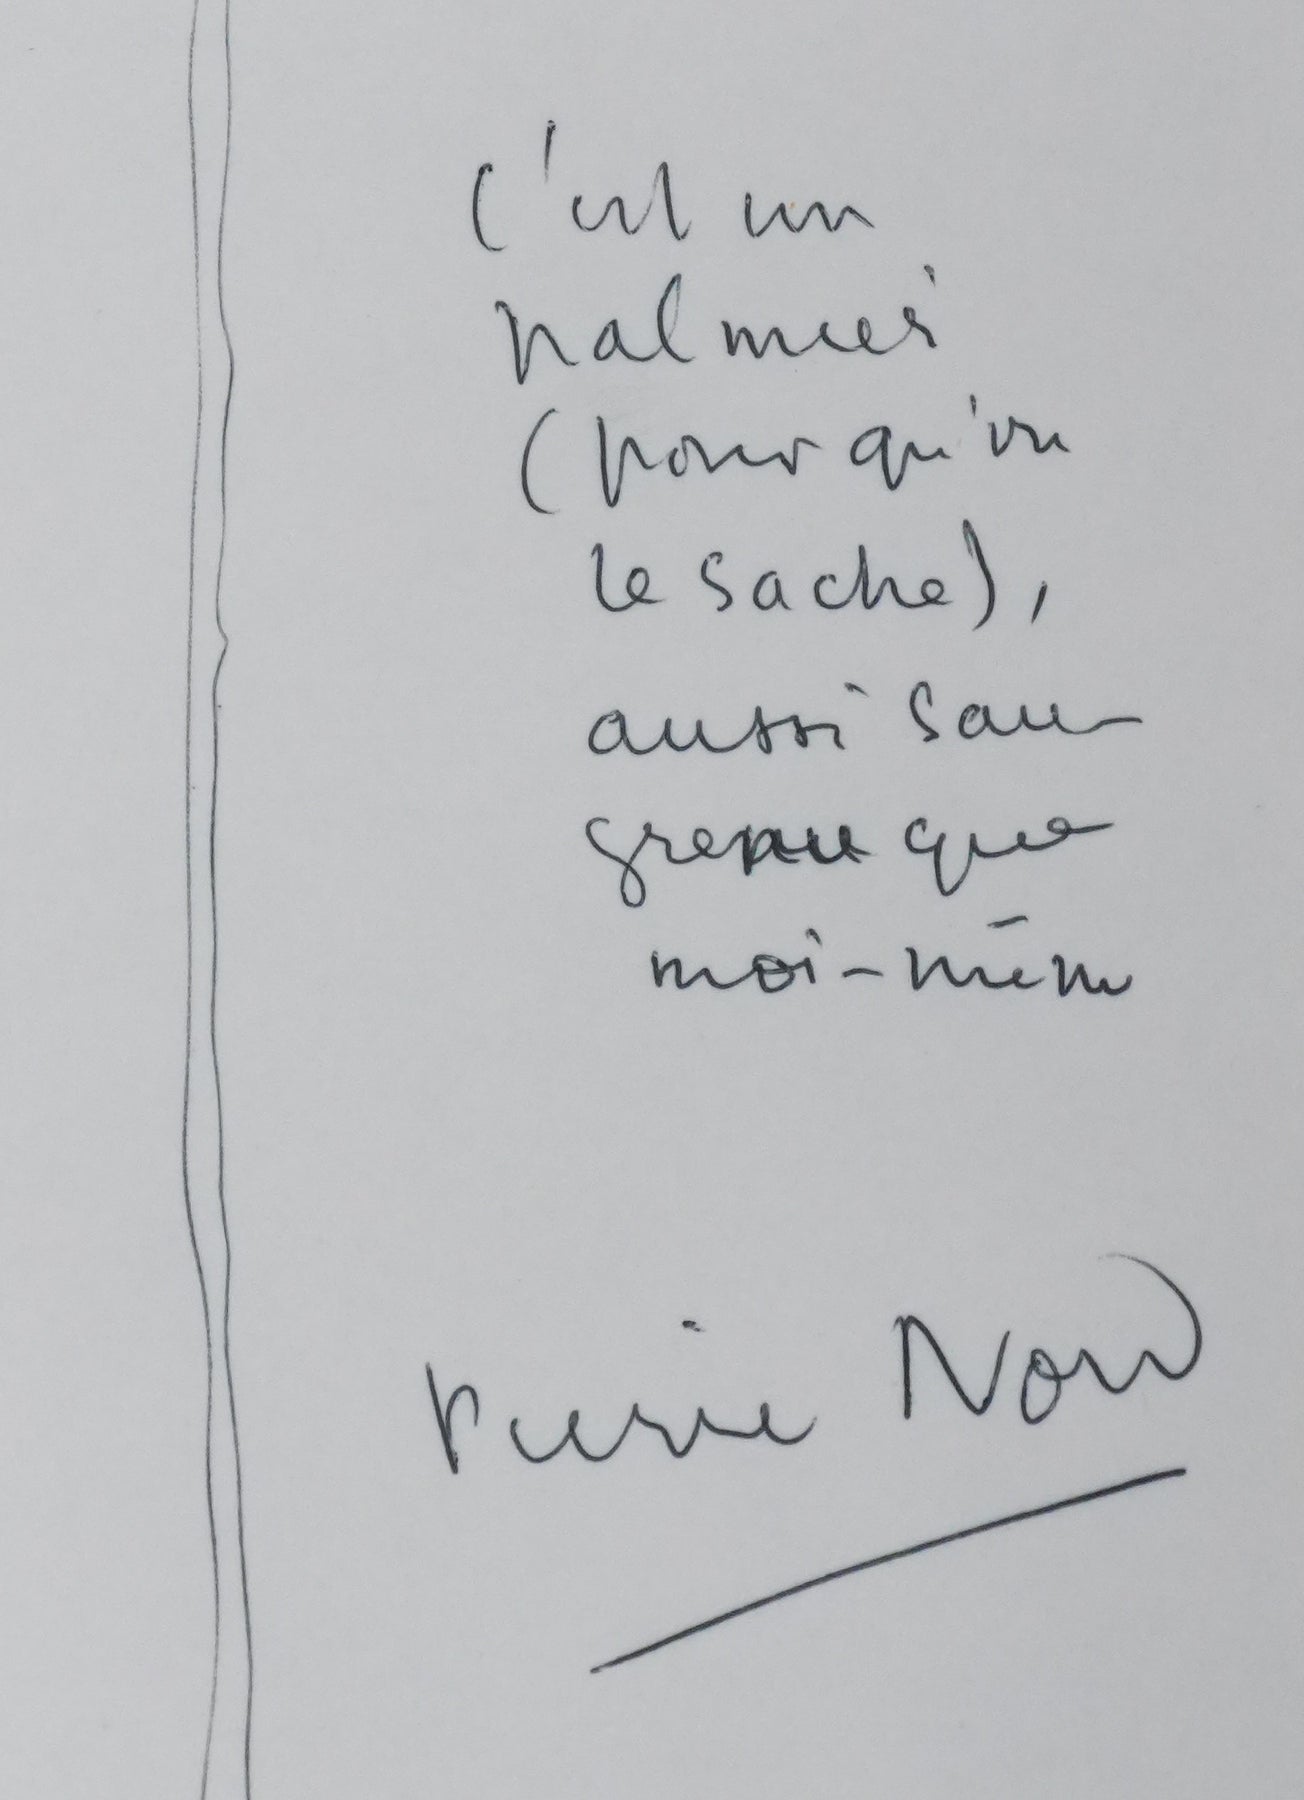 c'est un
palmier
(pour qu'on
le sache),
aussi sau-
grenu que
moi-même
Pierre Nord